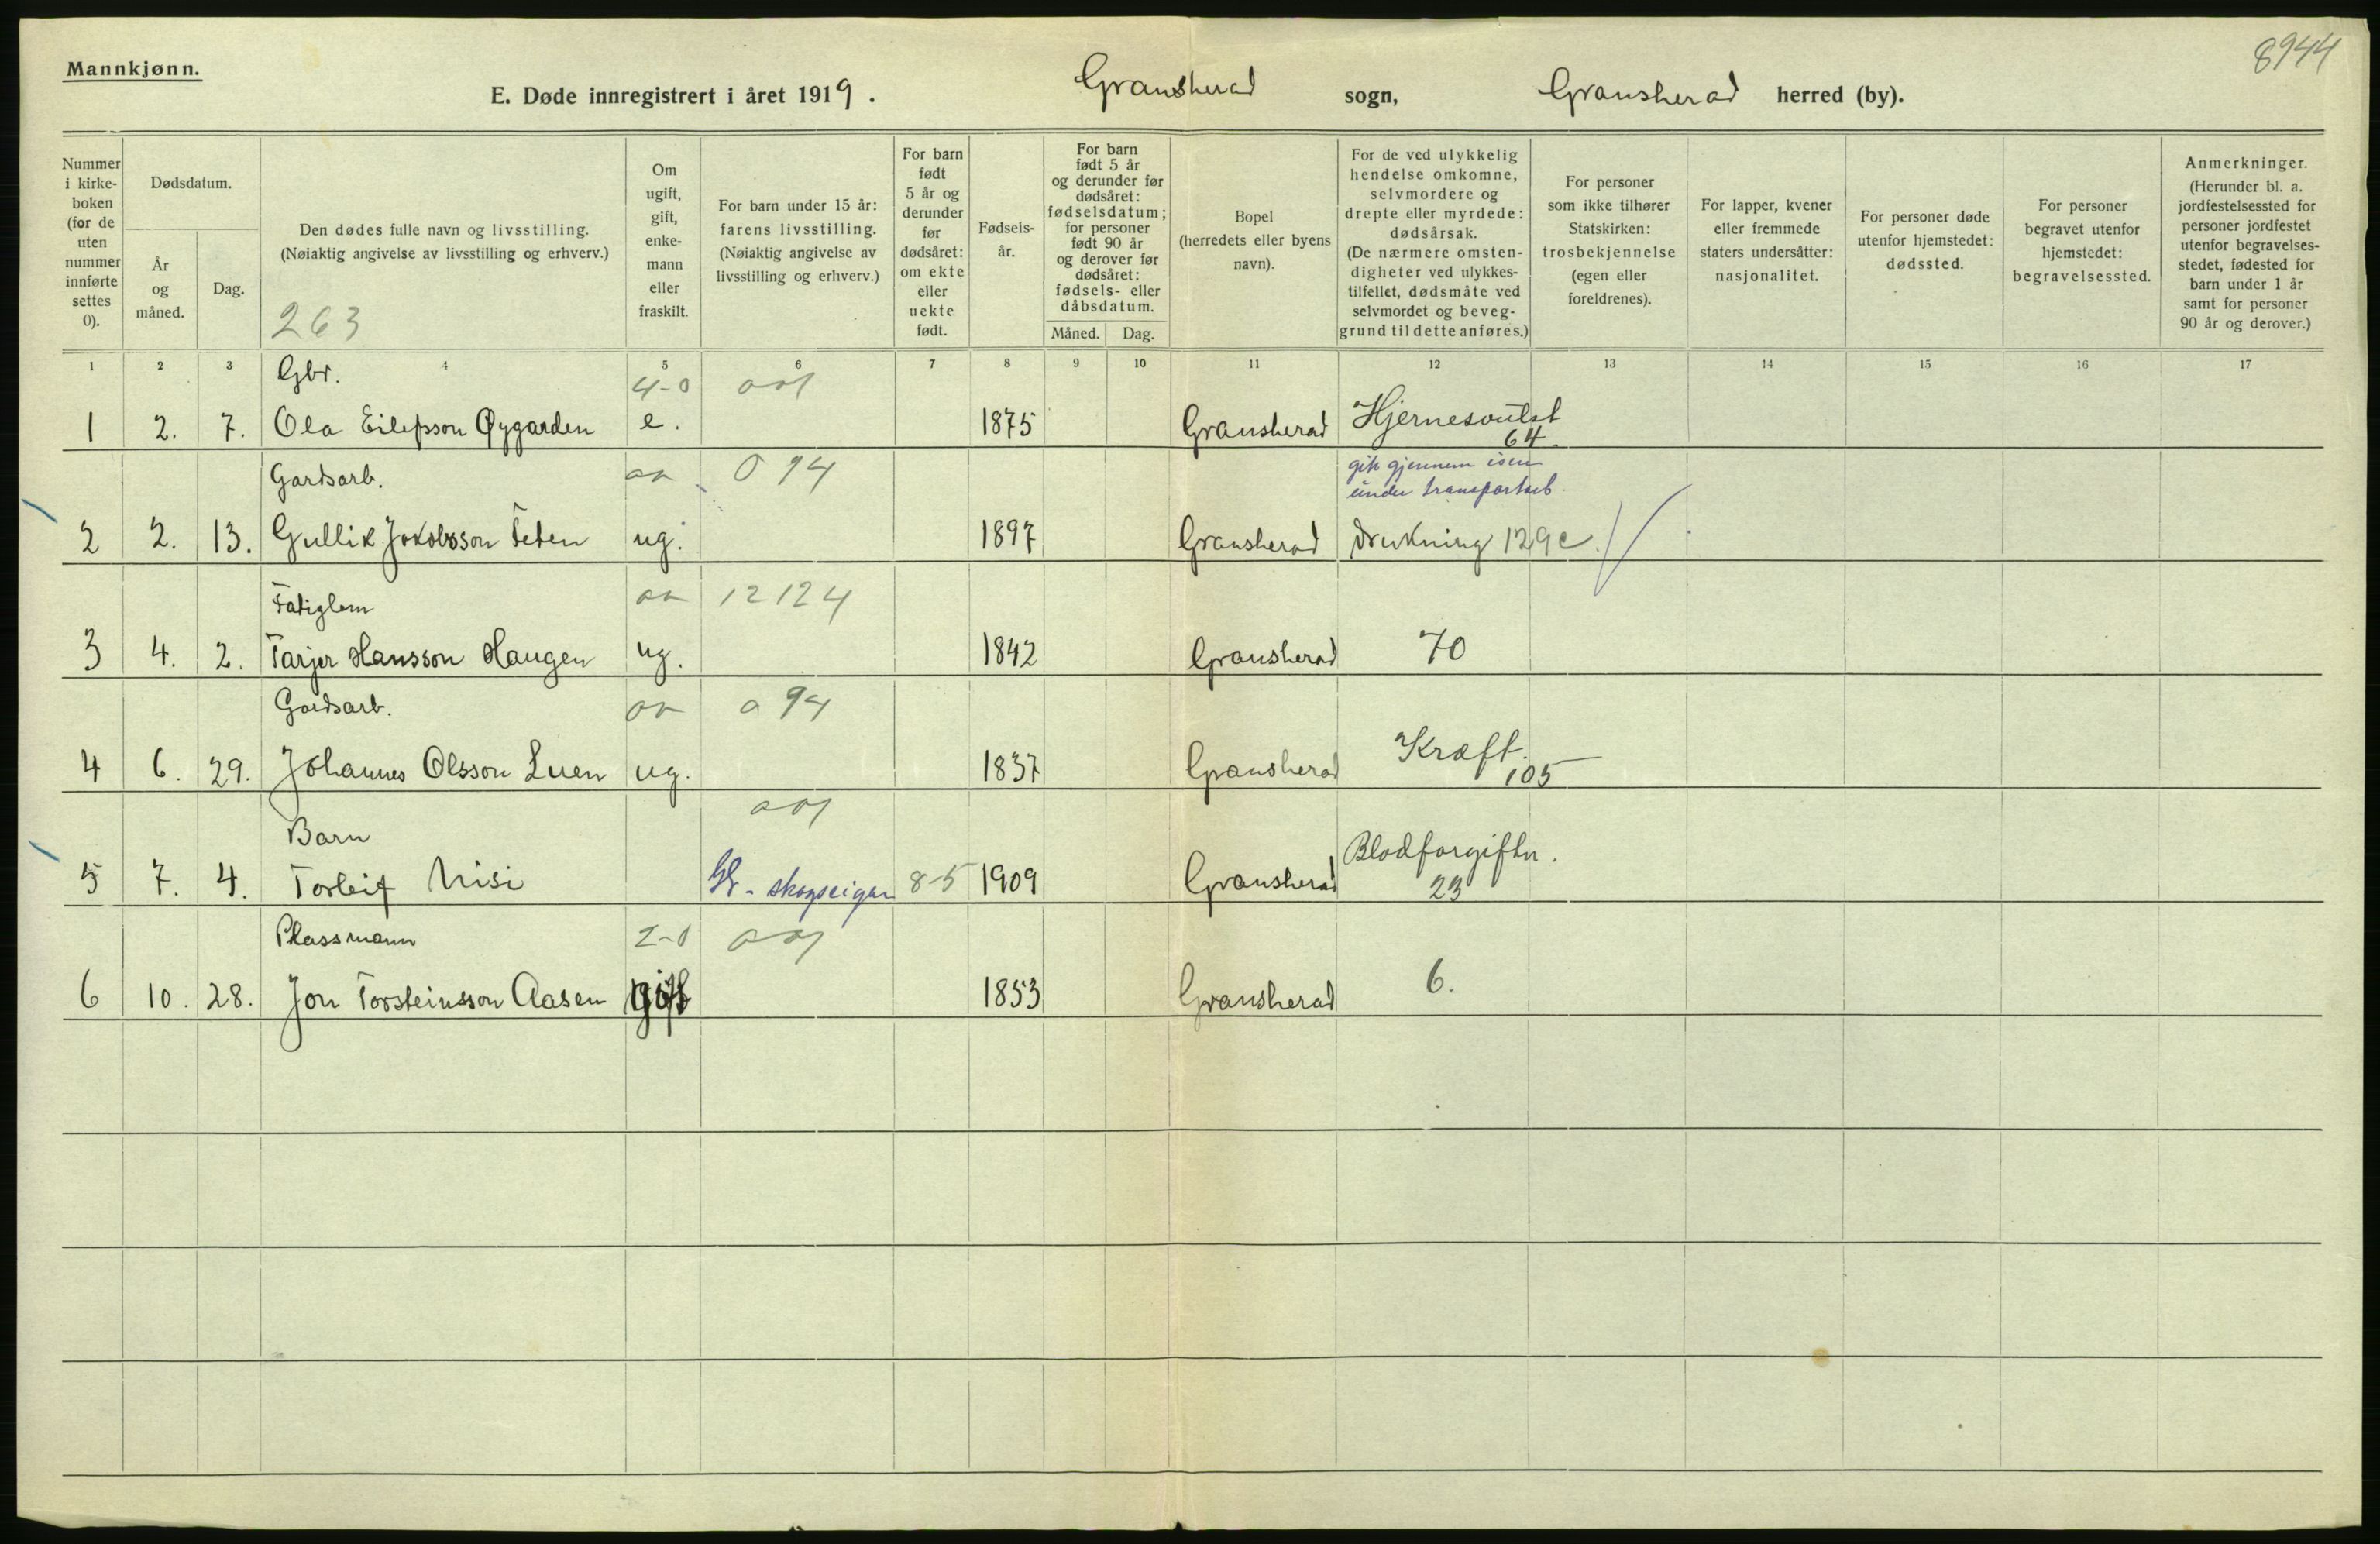 8944
Mannkjønn.
E. Døde innregistrert i året 1919. Gransherad sogn, Gransherad herred (by).
Nummer i kirke- boken (for de uten nummer innførte settes 0).
Dødsdatum.
År og måned.
Dag.
Den dødes fulle navn og livsstilling.
(Nøiaktig angivelse av livsstilling og erhverv.)
263
Om ugift, gift, enke- mann eller fraskilt.
For barn under 15 år: farens livsstilling. (Nøiaktig angivelse av livsstilling og erhverv.)
For barn født 5 år og derunder før dødsåret: om ekte eller uekte født.
Fødsels- år.
For barn født 5 år og derunder før dødsåret: fødselsdatum; for personer født 90 år og derover før dødsåret: fødsels- eller dåbsdatum.
Måned. Dag.
Bopel (herredets eller byens navn).
For de ved ulykkelig hendelse omkomne, selvmordere og drepte eller myrdede: dødsårsak. (De nærmere omsten- digheter ved ulykkes- tilfellet, dødsmåte ved selvmordet og beveg- grund til dette anføres.)
For personer som ikke tilhører Statskirken: trosbekjennelse (egen eller foreldrenes).
For lapper, kvener eller fremmede staters undersåtter: nasjonalitet.
For personer døde utenfor hjemstedet: dødssted.
For personer begravet utenfor hjemstedet: begravelsessted.
Anmerkninger. (Herunder bl. a. jordfestelsessted for personer jordfestet utenfor begravelses- stedet, fødested for barn under 1 år samt for personer 90 år og derover.)
1 2 3 4 5 6 7 8 9 10 11 12 13 14 15 16 17
Gbr. 4-0
1 2. 7. Ola Eilefsson Øygarden e. 1875 Gransherad Hjernesvulst
64
Gardsarb. 094 gik gjennem isen
under transportarb.
2 2. 13. Gullik Jokobsson Teten ug. 1897 Gransherad drukning 129c
Fatiglem 12124
3 4. 2. Tarjer Hansson Haugen ug. 1842 Gransherad 70
Gardsarb. 094
4 6. 29. Johannes Olsson Luen ug. 1837 Gransherad Kræft.
105
Barn Blodforgiftn.
5 7. 4. Torleif Misi Gbr.- skogseigar 8-5 1909 Gransherad 23
Plassmann 2-0
6 10. 28. Jon Torsteinsson Aasen gift 1853 Gransherad 6.